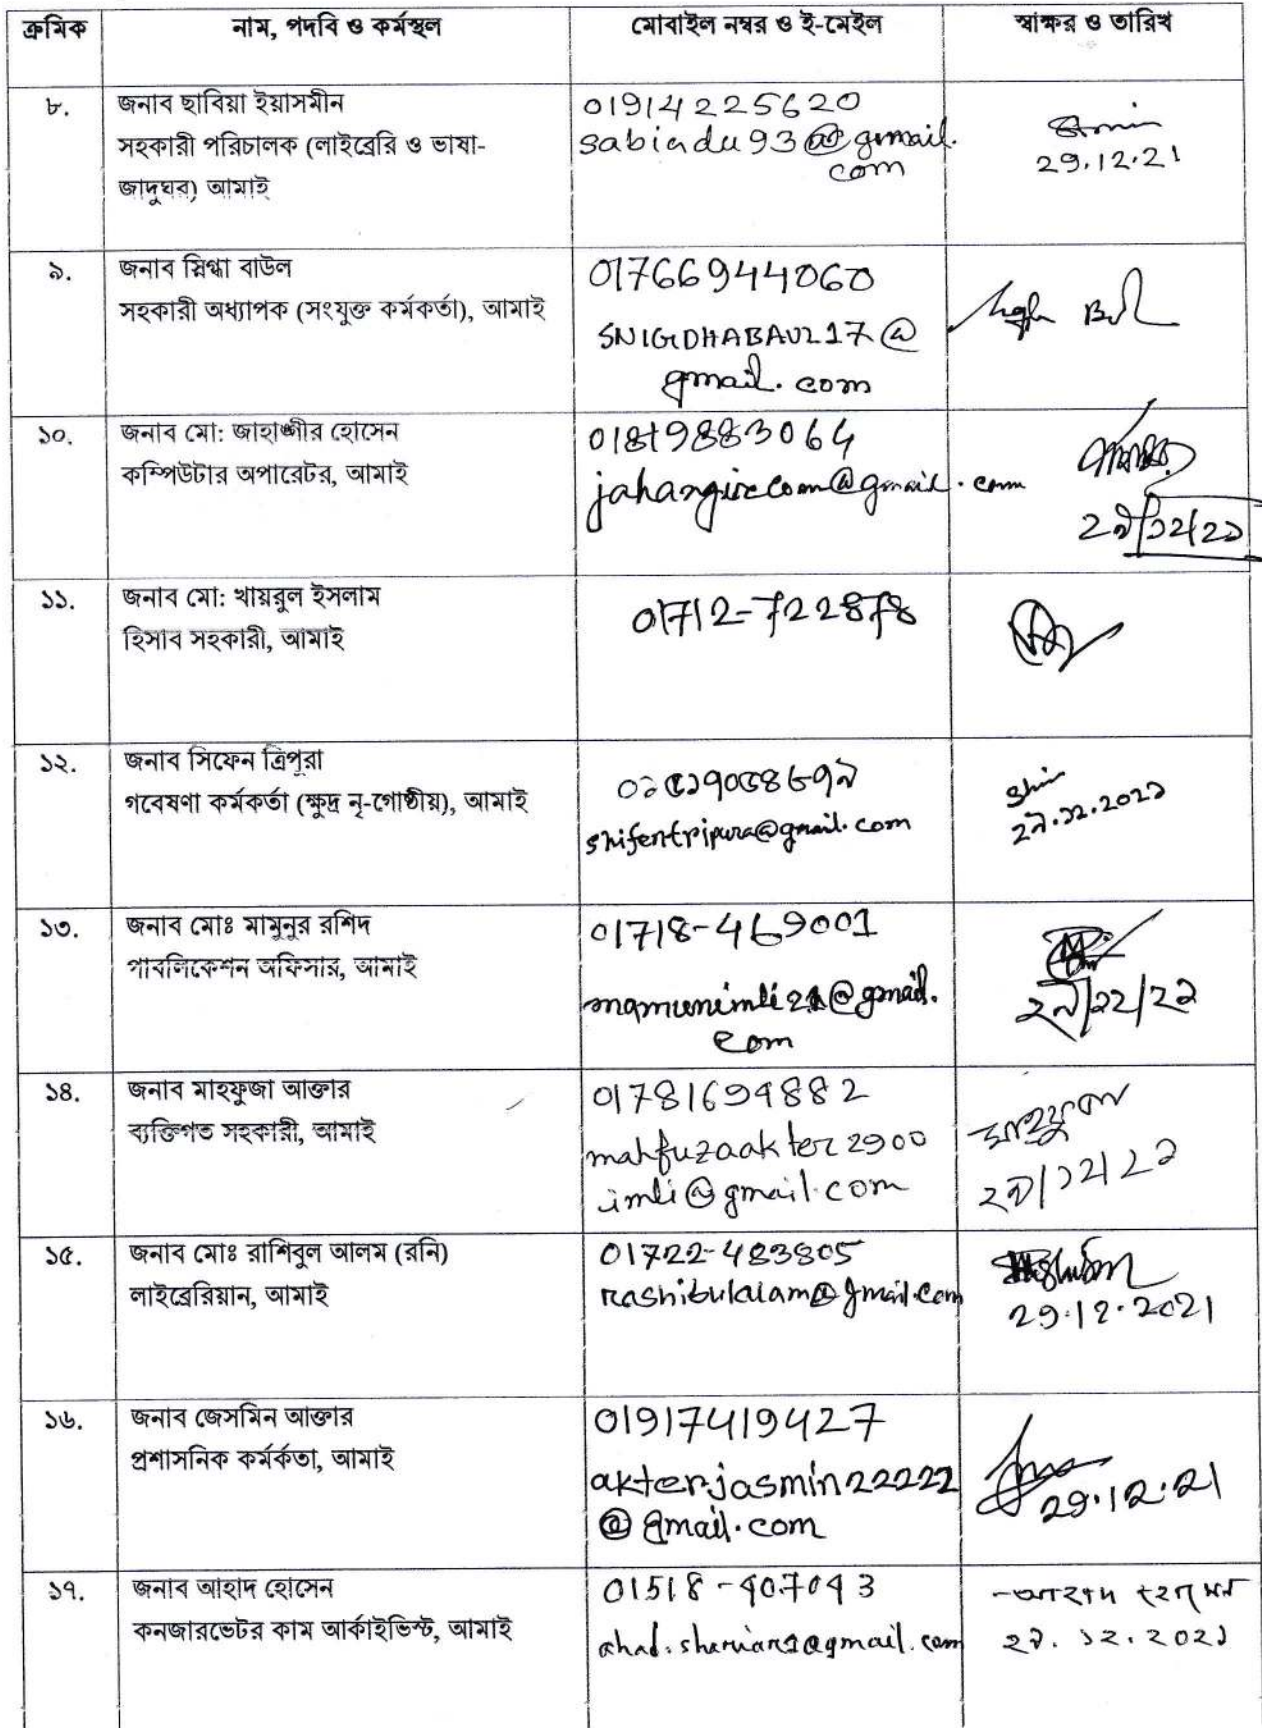 ক্রমিক নাম, পদবি ও কর্মস্থল মোবাইল নম্বর ও ই-মেইল স্বাক্ষর ও তারিখ
৮. জনাব ছাবিয়া ইয়াসমীন
সহকারী পরিচালক (লাইব্রেরি ও ভাষা-
জাদুঘর) আমাই
01914225620
sabiadu93@gmail.
com
29.12.21
৯. জনাব স্নিগ্ধা বাউল
সহকারী অধ্যাপক (সংযুক্ত কর্মকর্তা), আমাই
01766944060
SNIGDHABAUL17@
gmail.com
১০. জনাব মো: জাহাঙ্গীর হোসেন
কম্পিউটার অপারেটর, আমাই
01819883064
jahangircom@gmail.com
২৯/১২/২১
১১. জনাব মো: খায়রুল ইসলাম
হিসাব সহকারী, আমাই
01712-722878
১২. জনাব সিফেন ত্রিপুরা
গবেষণা কর্মকর্তা (ক্ষুদ্র নৃ-গোষ্ঠীয়), আমাই
shifentripura@gmail.com
২৯.১২.২০২১
১৩. জনাব মোঃ মামুনুর রশিদ
পাবলিকেশন অফিসার, আমাই
01718-469001
mamunimli21@gmail.
com
২৯/১২/২১
১৪. জনাব মাহফুজা আক্তার
ব্যক্তিগত সহকারী, আমাই
01781694882
mahfuzaakter2900
imli@gmail.com
মাহফুজা
২৯/১২/২১
১৫. জনাব মোঃ রাশিবুল আলম (রনি)
লাইব্রেরিয়ান, আমাই
01722-483805
rashibulalam@gmail.com
29.12.2021
১৬. জনাব জেসমিন আক্তার
প্রশাসনিক কর্মর্কতা, আমাই
01917419427
akterjasmin22222
@gmail.com
29.12.21
১৭. জনাব আহাদ হোসেন
কনজারভেটর কাম আর্কাইভিস্ট, আমাই
01518-407043
ahad.shariar1@gmail.com
আহাদ হোসেন
২৯.১২.২০২১